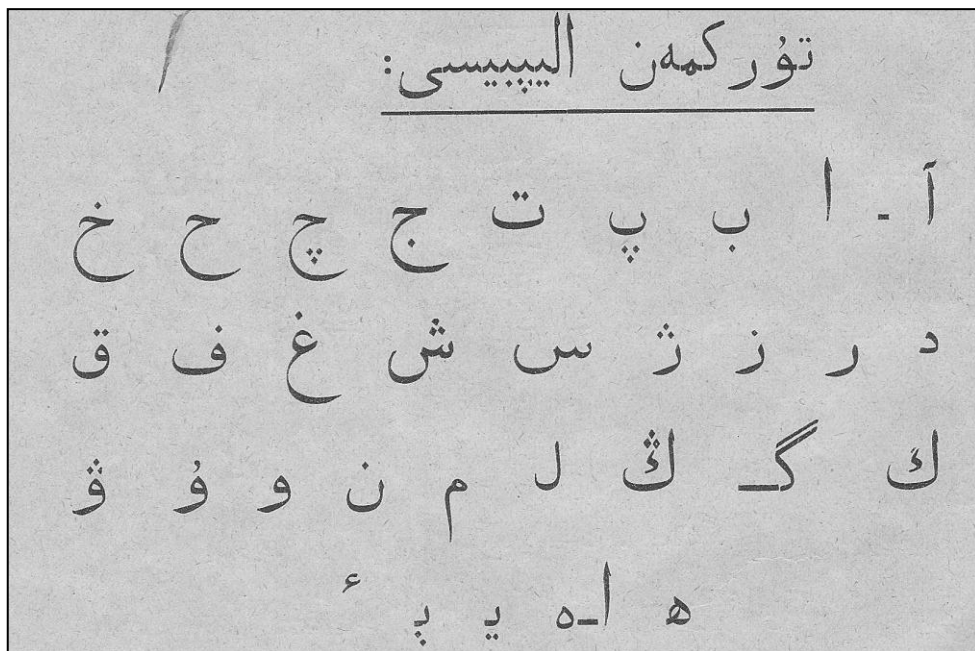 تۇركمەن اليپبيسى:
آ - ا ب پ ت ج چ ح خ
د ر ز ژ س ش غ ف ق
ك گـ ڭ ل م ن و ۇ ۋ
ه اـه يـ ء